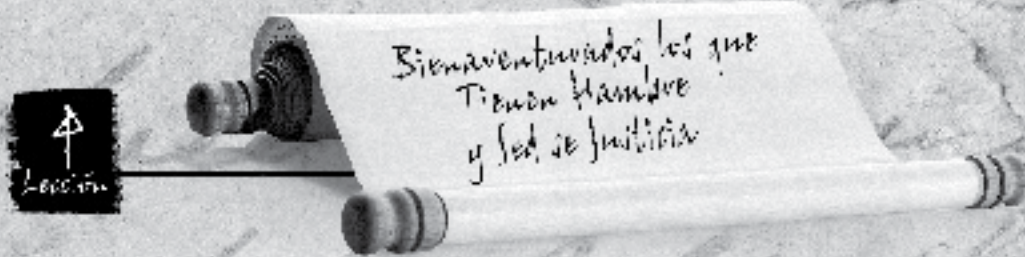 4
Lección
Bienaventurados los que
Tienen Hambre
y Sed de Justicia